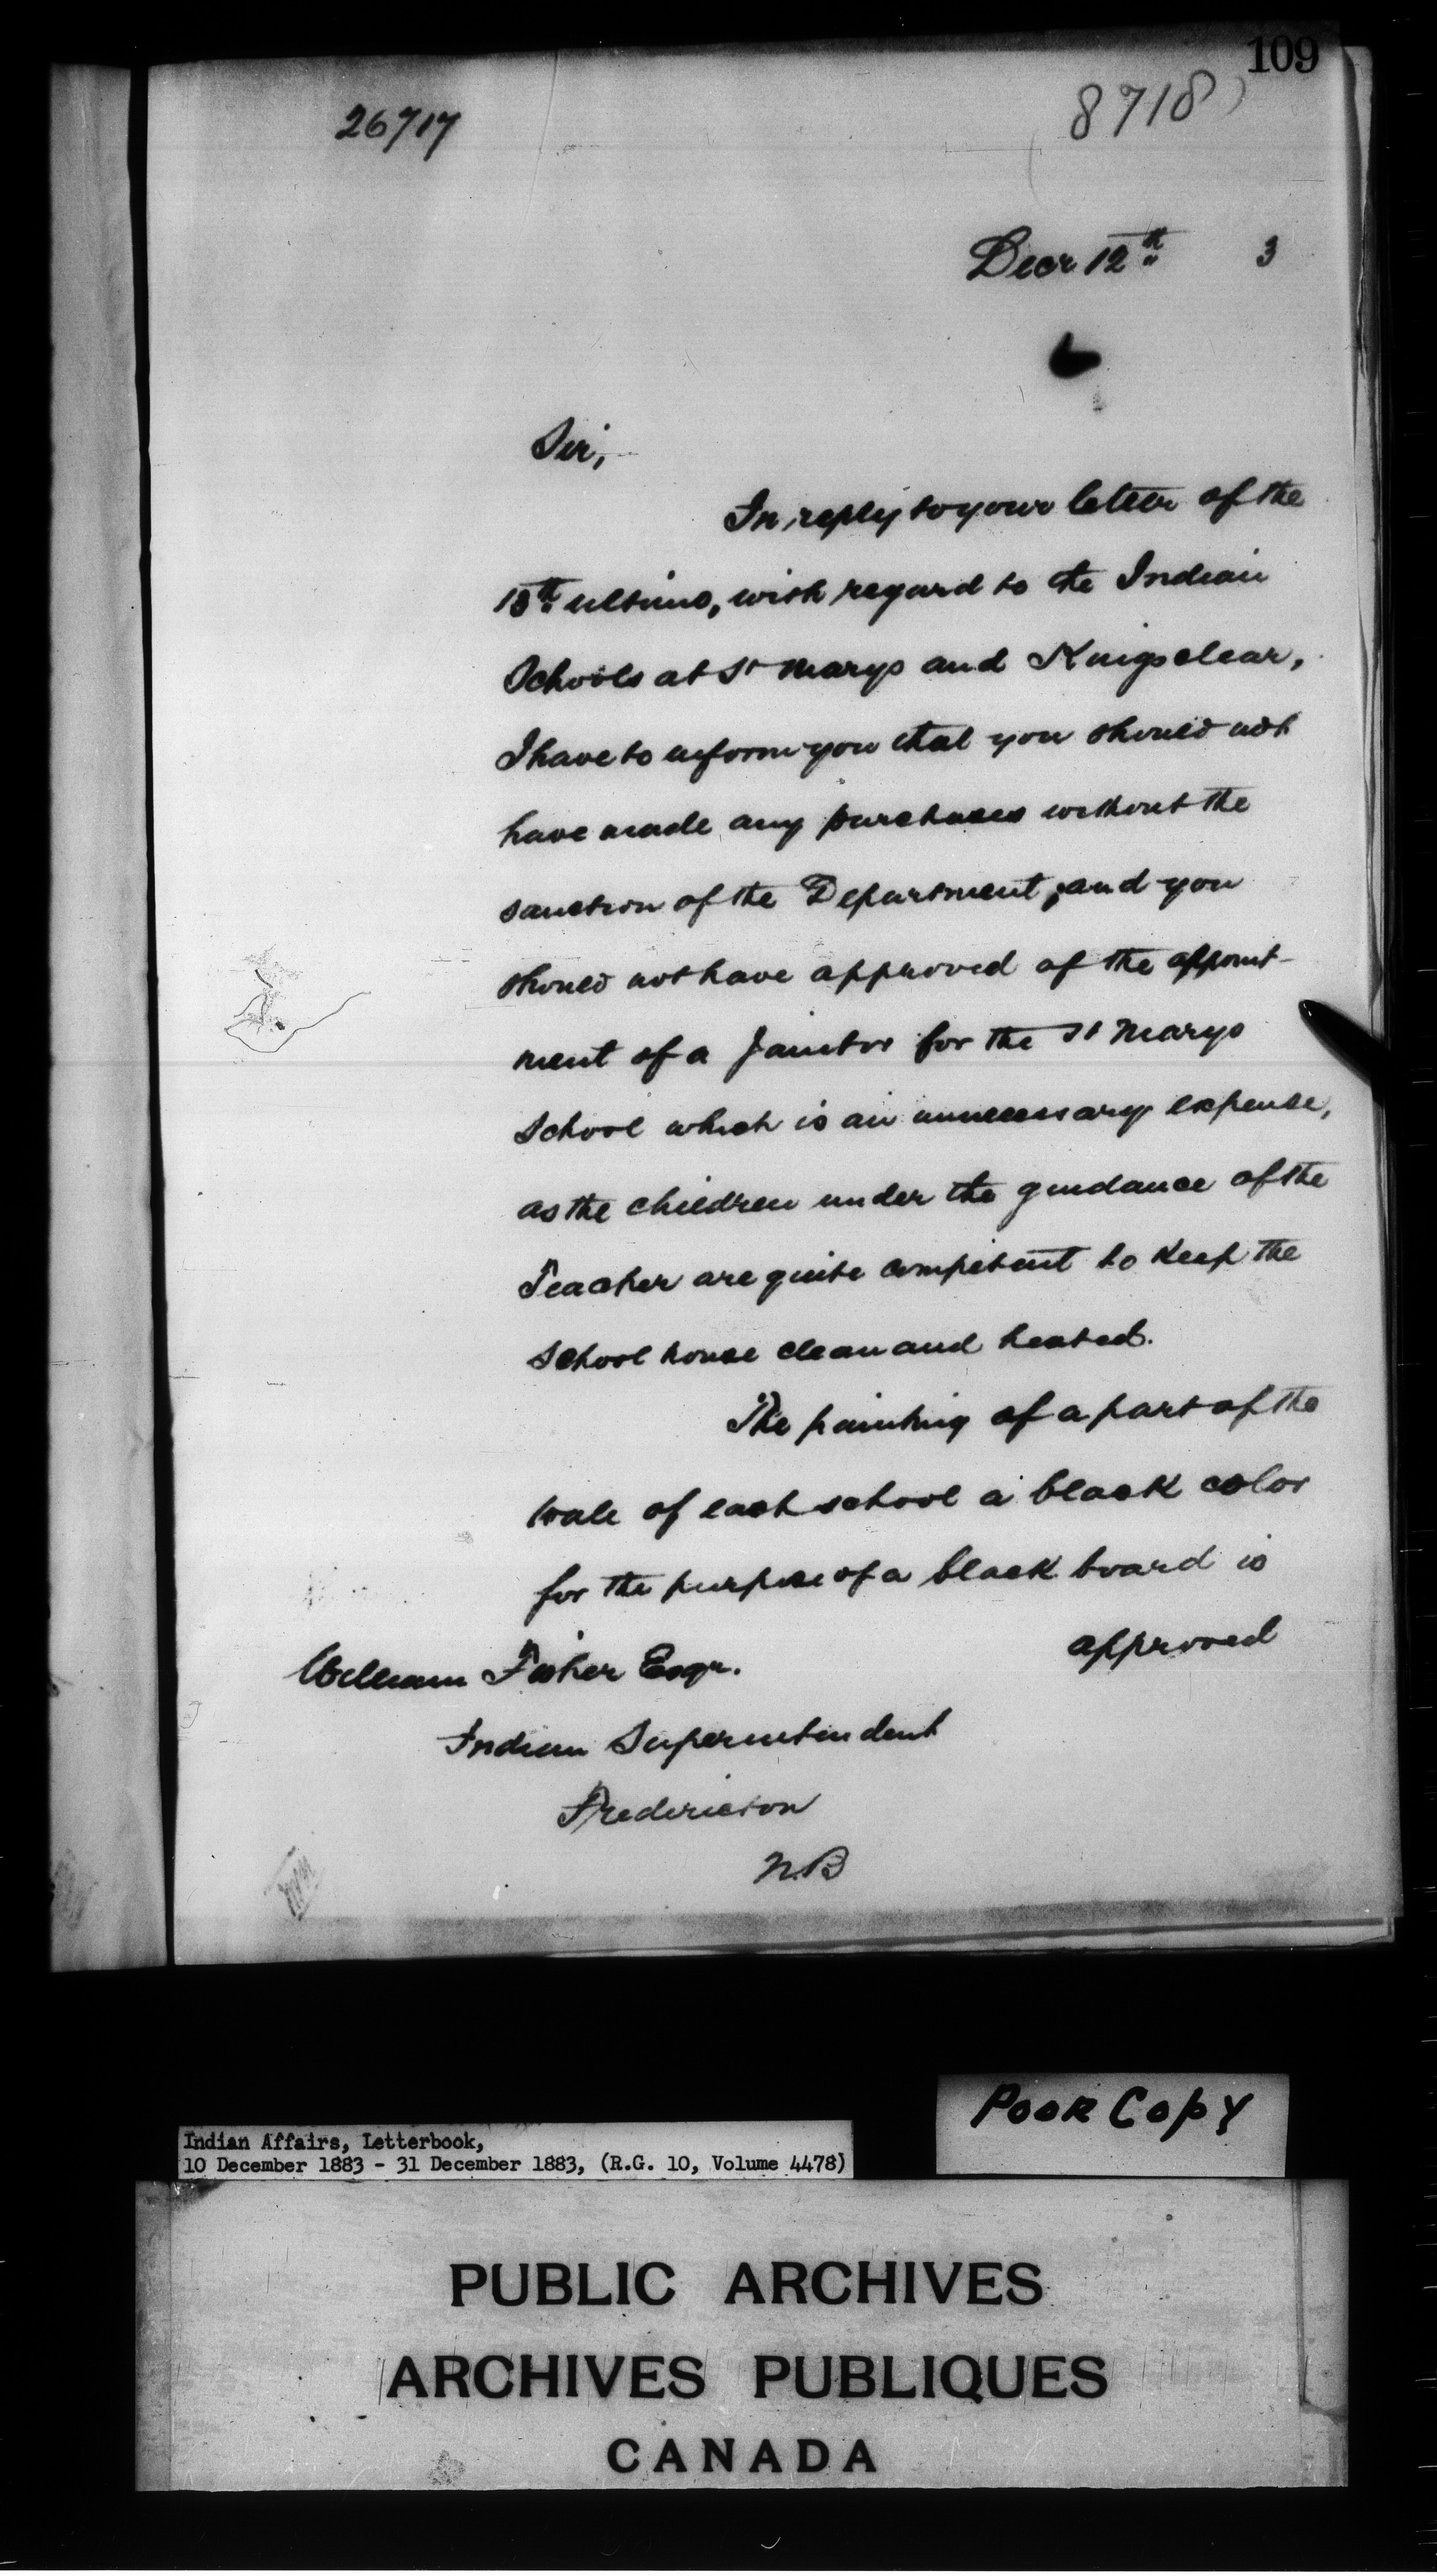 109
26717
8718
Decr 12th 3
Sir,
In reply to your letter of the
15th ultimo, with regard to the Indian
Schools at St Marys and Kingsclear,
I have to inform you that you should not
have made any purchases without the
sanction of the Department, and you
should not have approved of the appoint-
ment of a Janitor for the St Marys
School which is an unnecessary expense,
as the children under the guidance of the
Teacher are quite competent to keep the
School house clean and heated.
The painting of a part of the
wall of each school a black color
for the purpose of a black board is
approved
William Fisher Esqr.
Indian Superintendent
Fredericton
N.B
Poor Copy
Indian Affairs, Letterbook,
10 December 1883 - 31 December 1883, (R.G. 10, Volume 4478)
PUBLIC ARCHIVES
ARCHIVES PUBLIQUES
CANADA